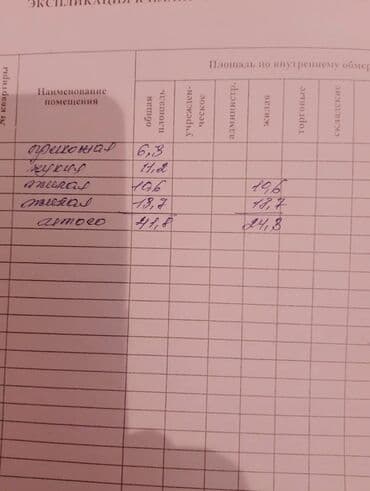 ЭКСПЛИКАЦИЯ К
Площадь по внутреннему обмер
№ квартиры
Наименование помещения
общая площадь
учрежден-ческое
администр.
жилая
торговые
складские
прихожая 6,3
кухня 11,2
жилая 10,6 10,6
жилая 13,7 13,7
итого 41,8 24,3